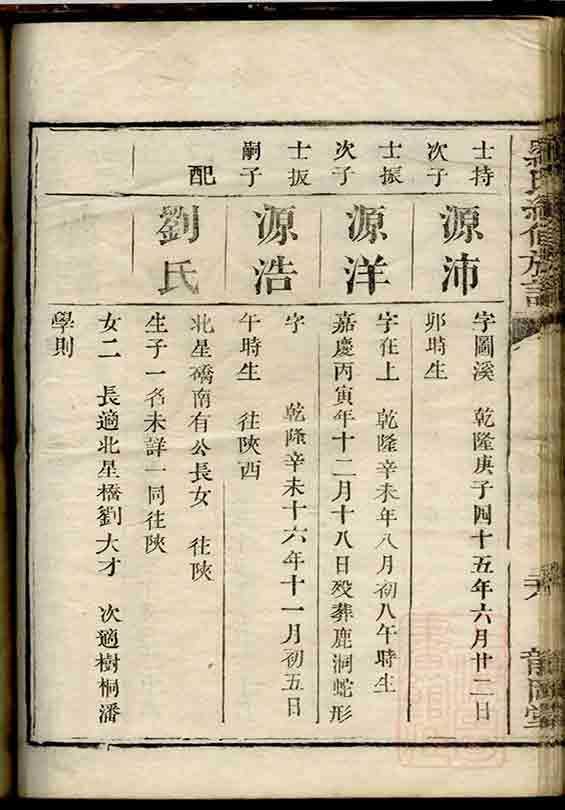 士持
次子
源沛
字圖溪　乾隆庚子四十五年六月廿二日
卯時生
士振
次子
源洋
字在上　乾隆辛未年八月初八午時生
嘉慶丙寅年十二月十八日歿葬鹿洞蛇形
士扳
嗣子
源浩
字　乾隆辛未十六年十一月初五日
午時生　往陝西
配
劉氏
北星橋南有公長女　往陝
生子一名未詳一同往陝
女二　長適北星橋劉大才　次適樹桐潘
學則